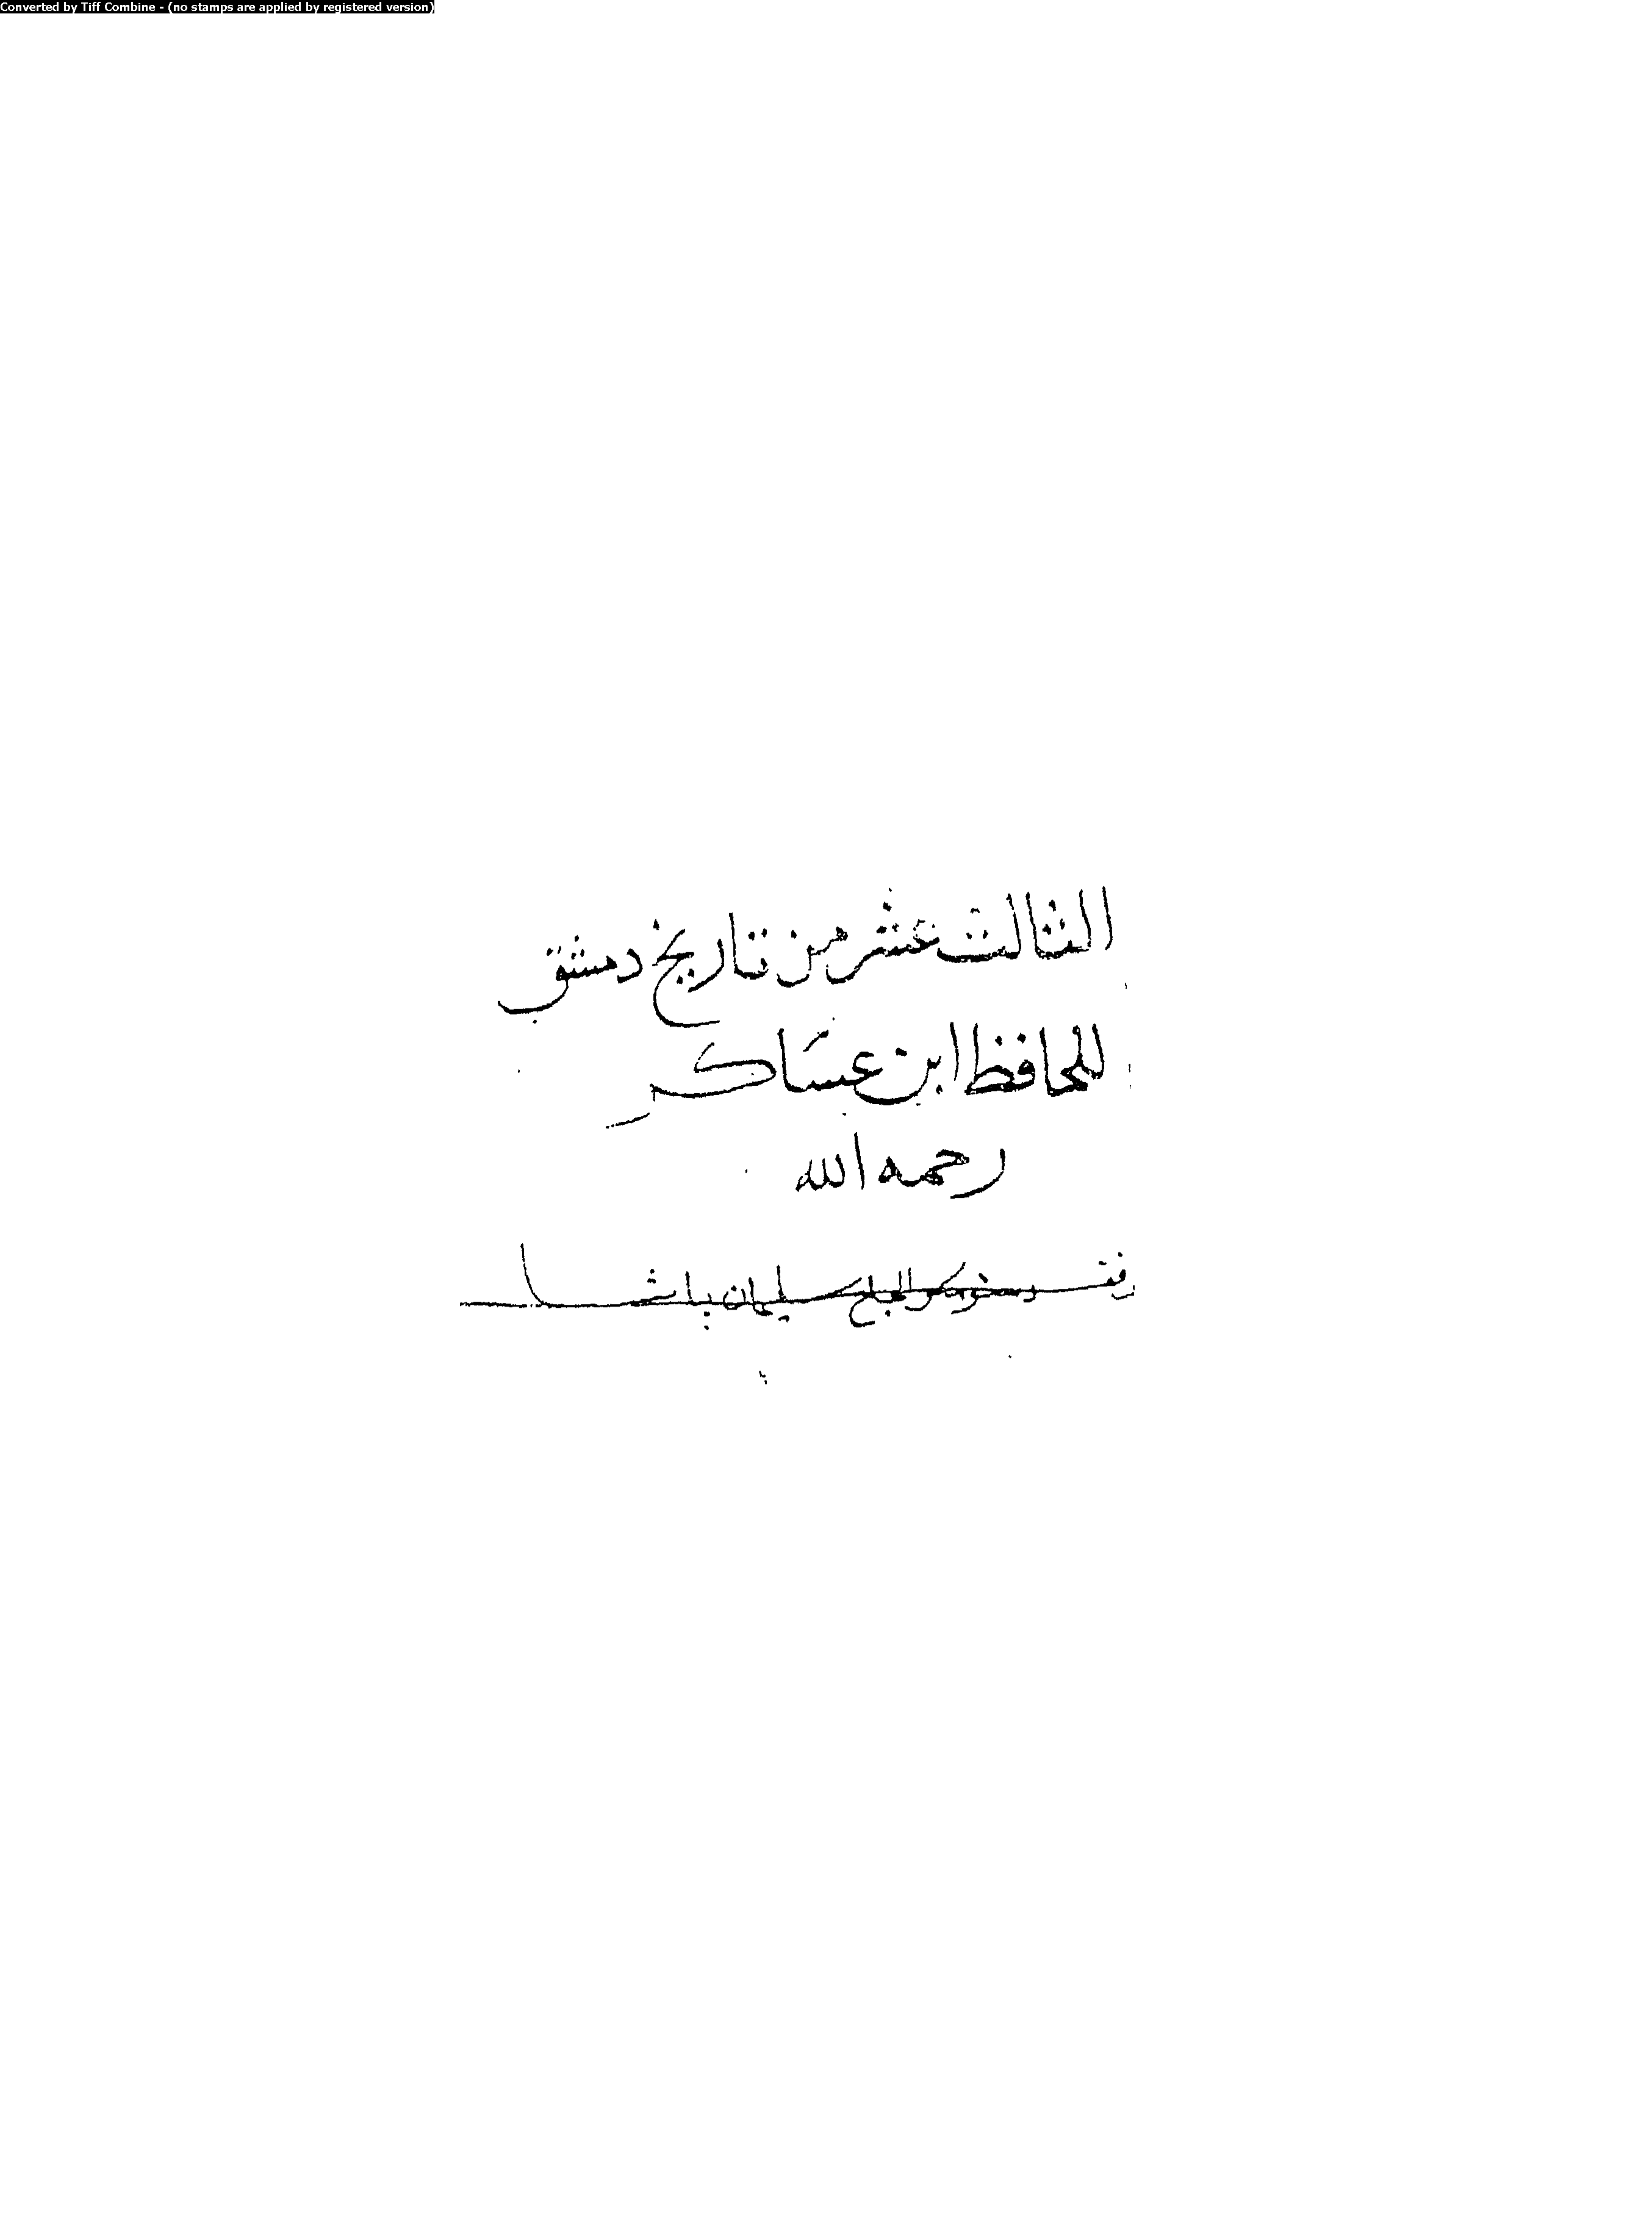 Converted by Tiff Combine - (no stamps are applied by registered version)
الثالث عشر من تاريخ دمشق
للحافظ ابن عساكر
رحمه الله
وقف سليمان باشا